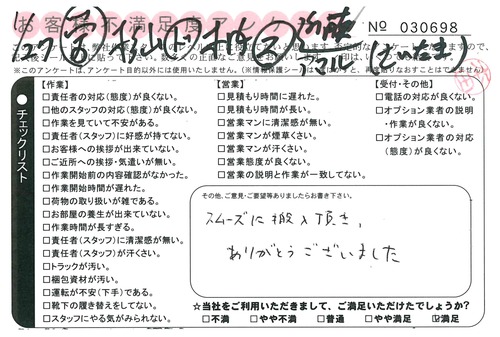 お客様不満足度アンケート
No 030698
チェックリスト
【作業】
□責任者の対応(態度)が良くない。
□他のスタッフの対応(態度)が良くない。
□作業を見ていて不安がある。
□責任者(スタッフ)に好感が持てない。
□お客様への挨拶が出来ていない。
□ご近所への挨拶・気遣いが無い。
□作業開始前の内容確認がなかった。
□作業開始時間が遅れた。
□荷物の取り扱いが雑である。
□お部屋の養生が出来ていない。
□作業時間が長すぎる。
□責任者(スタッフ)に清潔感が無い。
□責任者(スタッフ)が汗くさい。
□トラックが汚い。
□梱包資材が汚い。
□運転が不安(下手)である。
□靴下の履き替えをしてない。
□スタッフにやる気がみられない。
【営業】
□見積もり時間に遅れた。
□見積もり時間が長い。
□営業マンに清潔感が無い。
□営業マンが煙草くさい。
□営業マンが汗くさい。
□営業態度が良くない。
□営業の説明と作業が一致してない。
【受付・その他】
□電話の対応が良くない。
□オプション業者の説明・作業が良くない。
□オプション業者の対応(態度)が良くない。
その他、ご意見・ご要望等ありましたらお書き下さい。
スムーズに搬入頂き、
ありがとうございました
☆当社をご利用いただきまして、ご満足いただけたでしょうか?
□不満 □やや不満 □普通 □やや満足 ☑満足